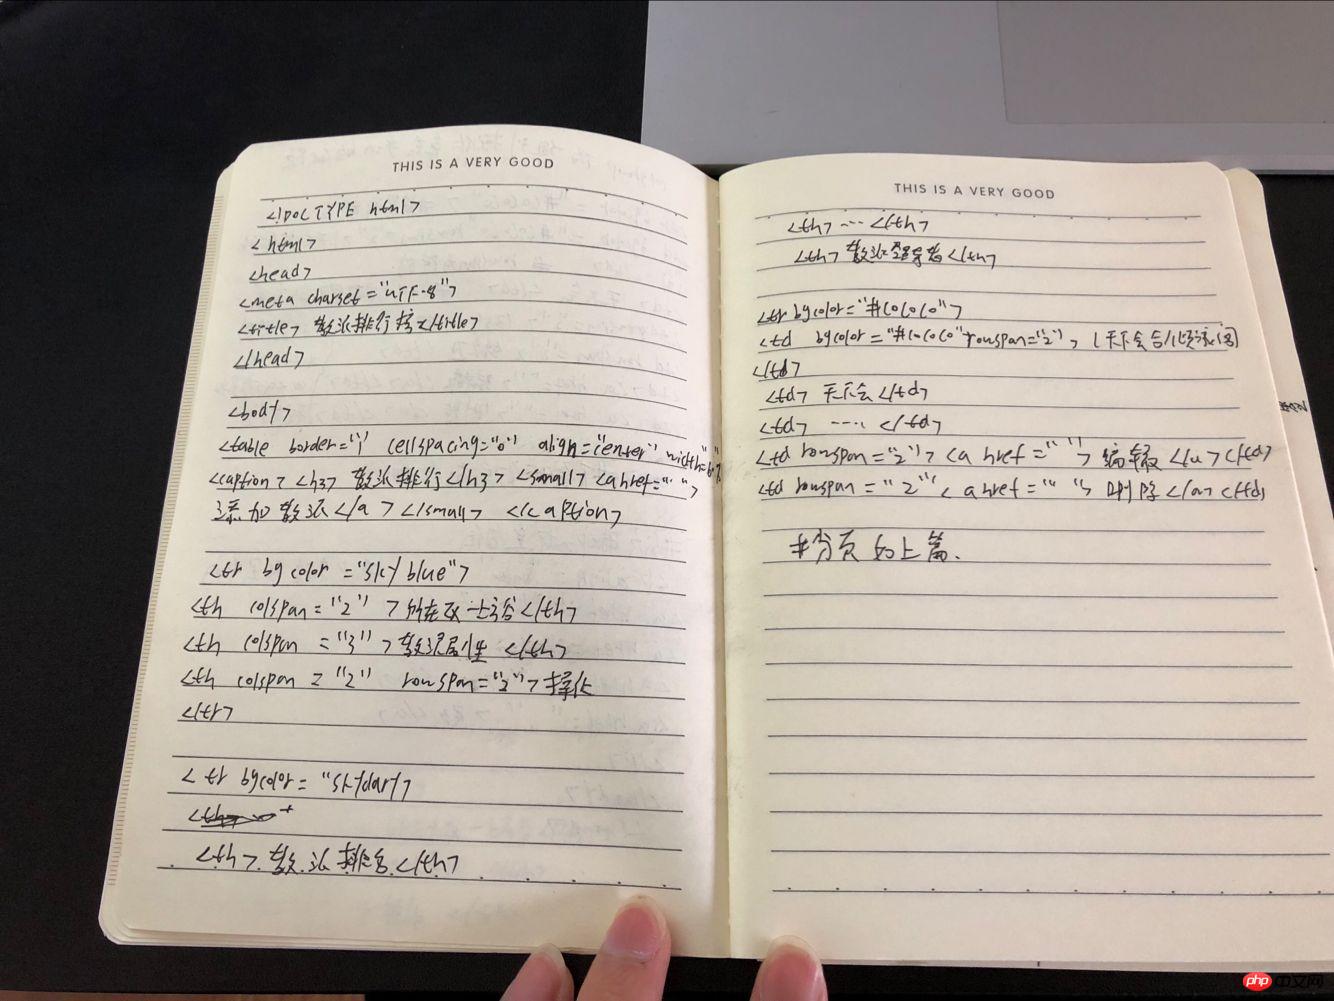 THIS IS A VERY GOOD
<!DOCTYPE html>
<html>
<head>
<meta charset="UTF-8">
<title> 教派排行榜</title>
</head>
<body>
<table border="1" cellspacing="0" align="center" width="
<caption> <h3> 教派排行</h3> <small> <a href=" ">
添加教派</a> </small> </caption>
<tr bgcolor ="sky blue">
<th colspan="2" > </th>
<th colspan ="3"> 教派属性 </th>
<th colspan = "2" rowspan="2"> 操作
</tr>
< tr bgcolor = "sky
<th>
<th> 教派排名</th>
THIS IS A VERY GOOD
<th> ... </th>
<th> 教派领导者</th>
<tr bgcolor="#C0C0C0">
<td bgcolor="#C0C0C0" rowspan="2"> 天下会
</td>
<td> 天下会</td>
<td> .... </td>
<td rowspan="2"> <a href=" "> 编辑 </a> </td>
<td rowspan ="2"< a href=" "> 删除</a> </td>
#分页如上篇.
php 中文网